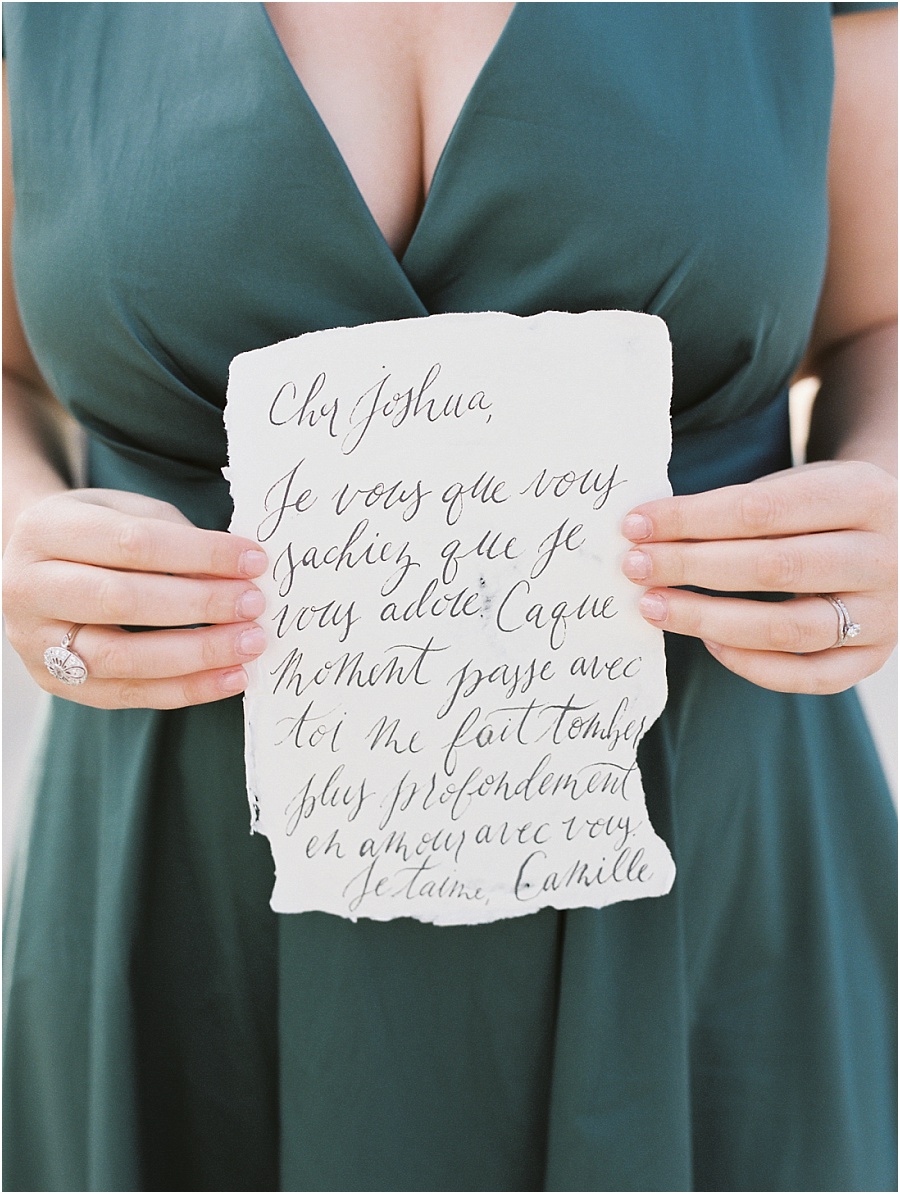 Cher Joshua,
Je vous que vous
sachiez que je
vous adore. Caque
moment passe avec
toi me fait tomber
plus profondement
en amour avec vous.
Je t'aime, Camille